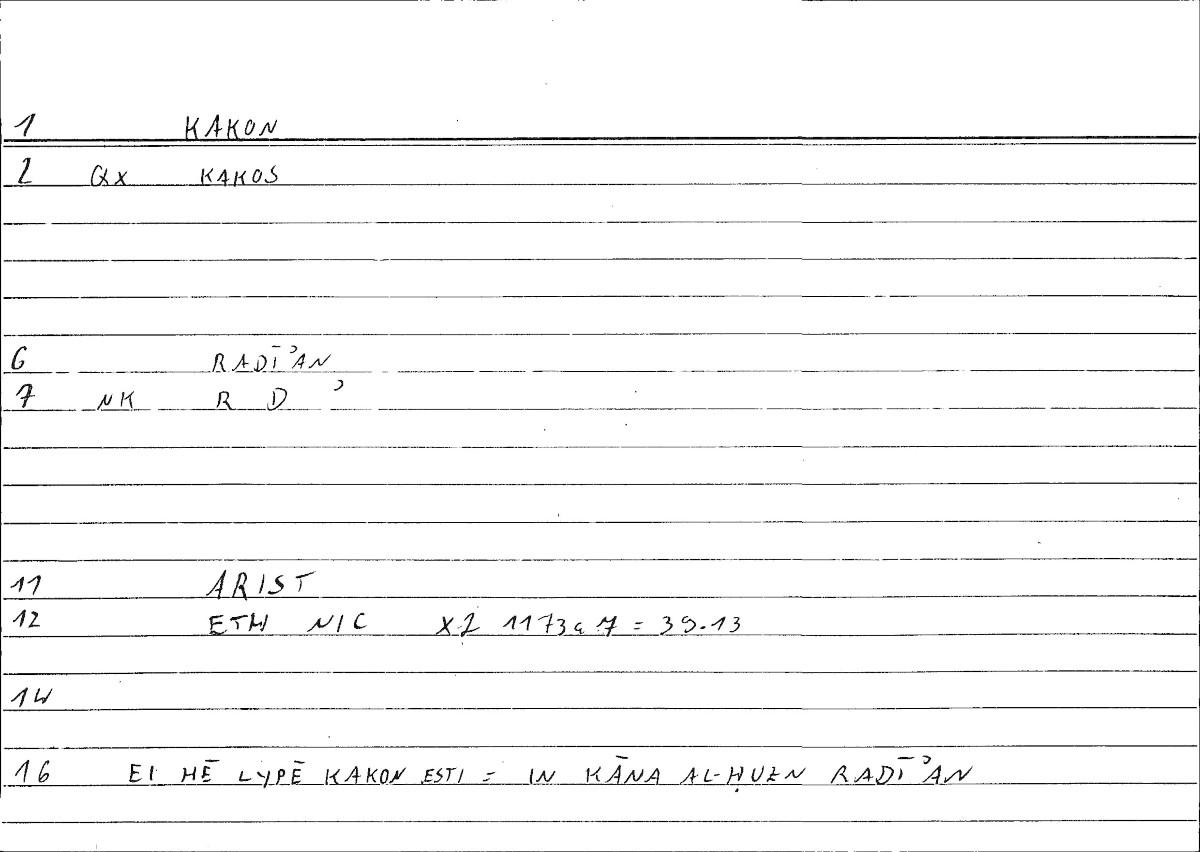 1 KAKON
2 Qx KAKOS
6 RADĪʾAN
7 NK R D ʾ
11 ARIST
12 ETH NIC X2 1173a7 = 39.13
14
16 EI HĒ LYPĒ KAKON ESTI = IN KĀNA AL-ḤUZN RADĪʾAN